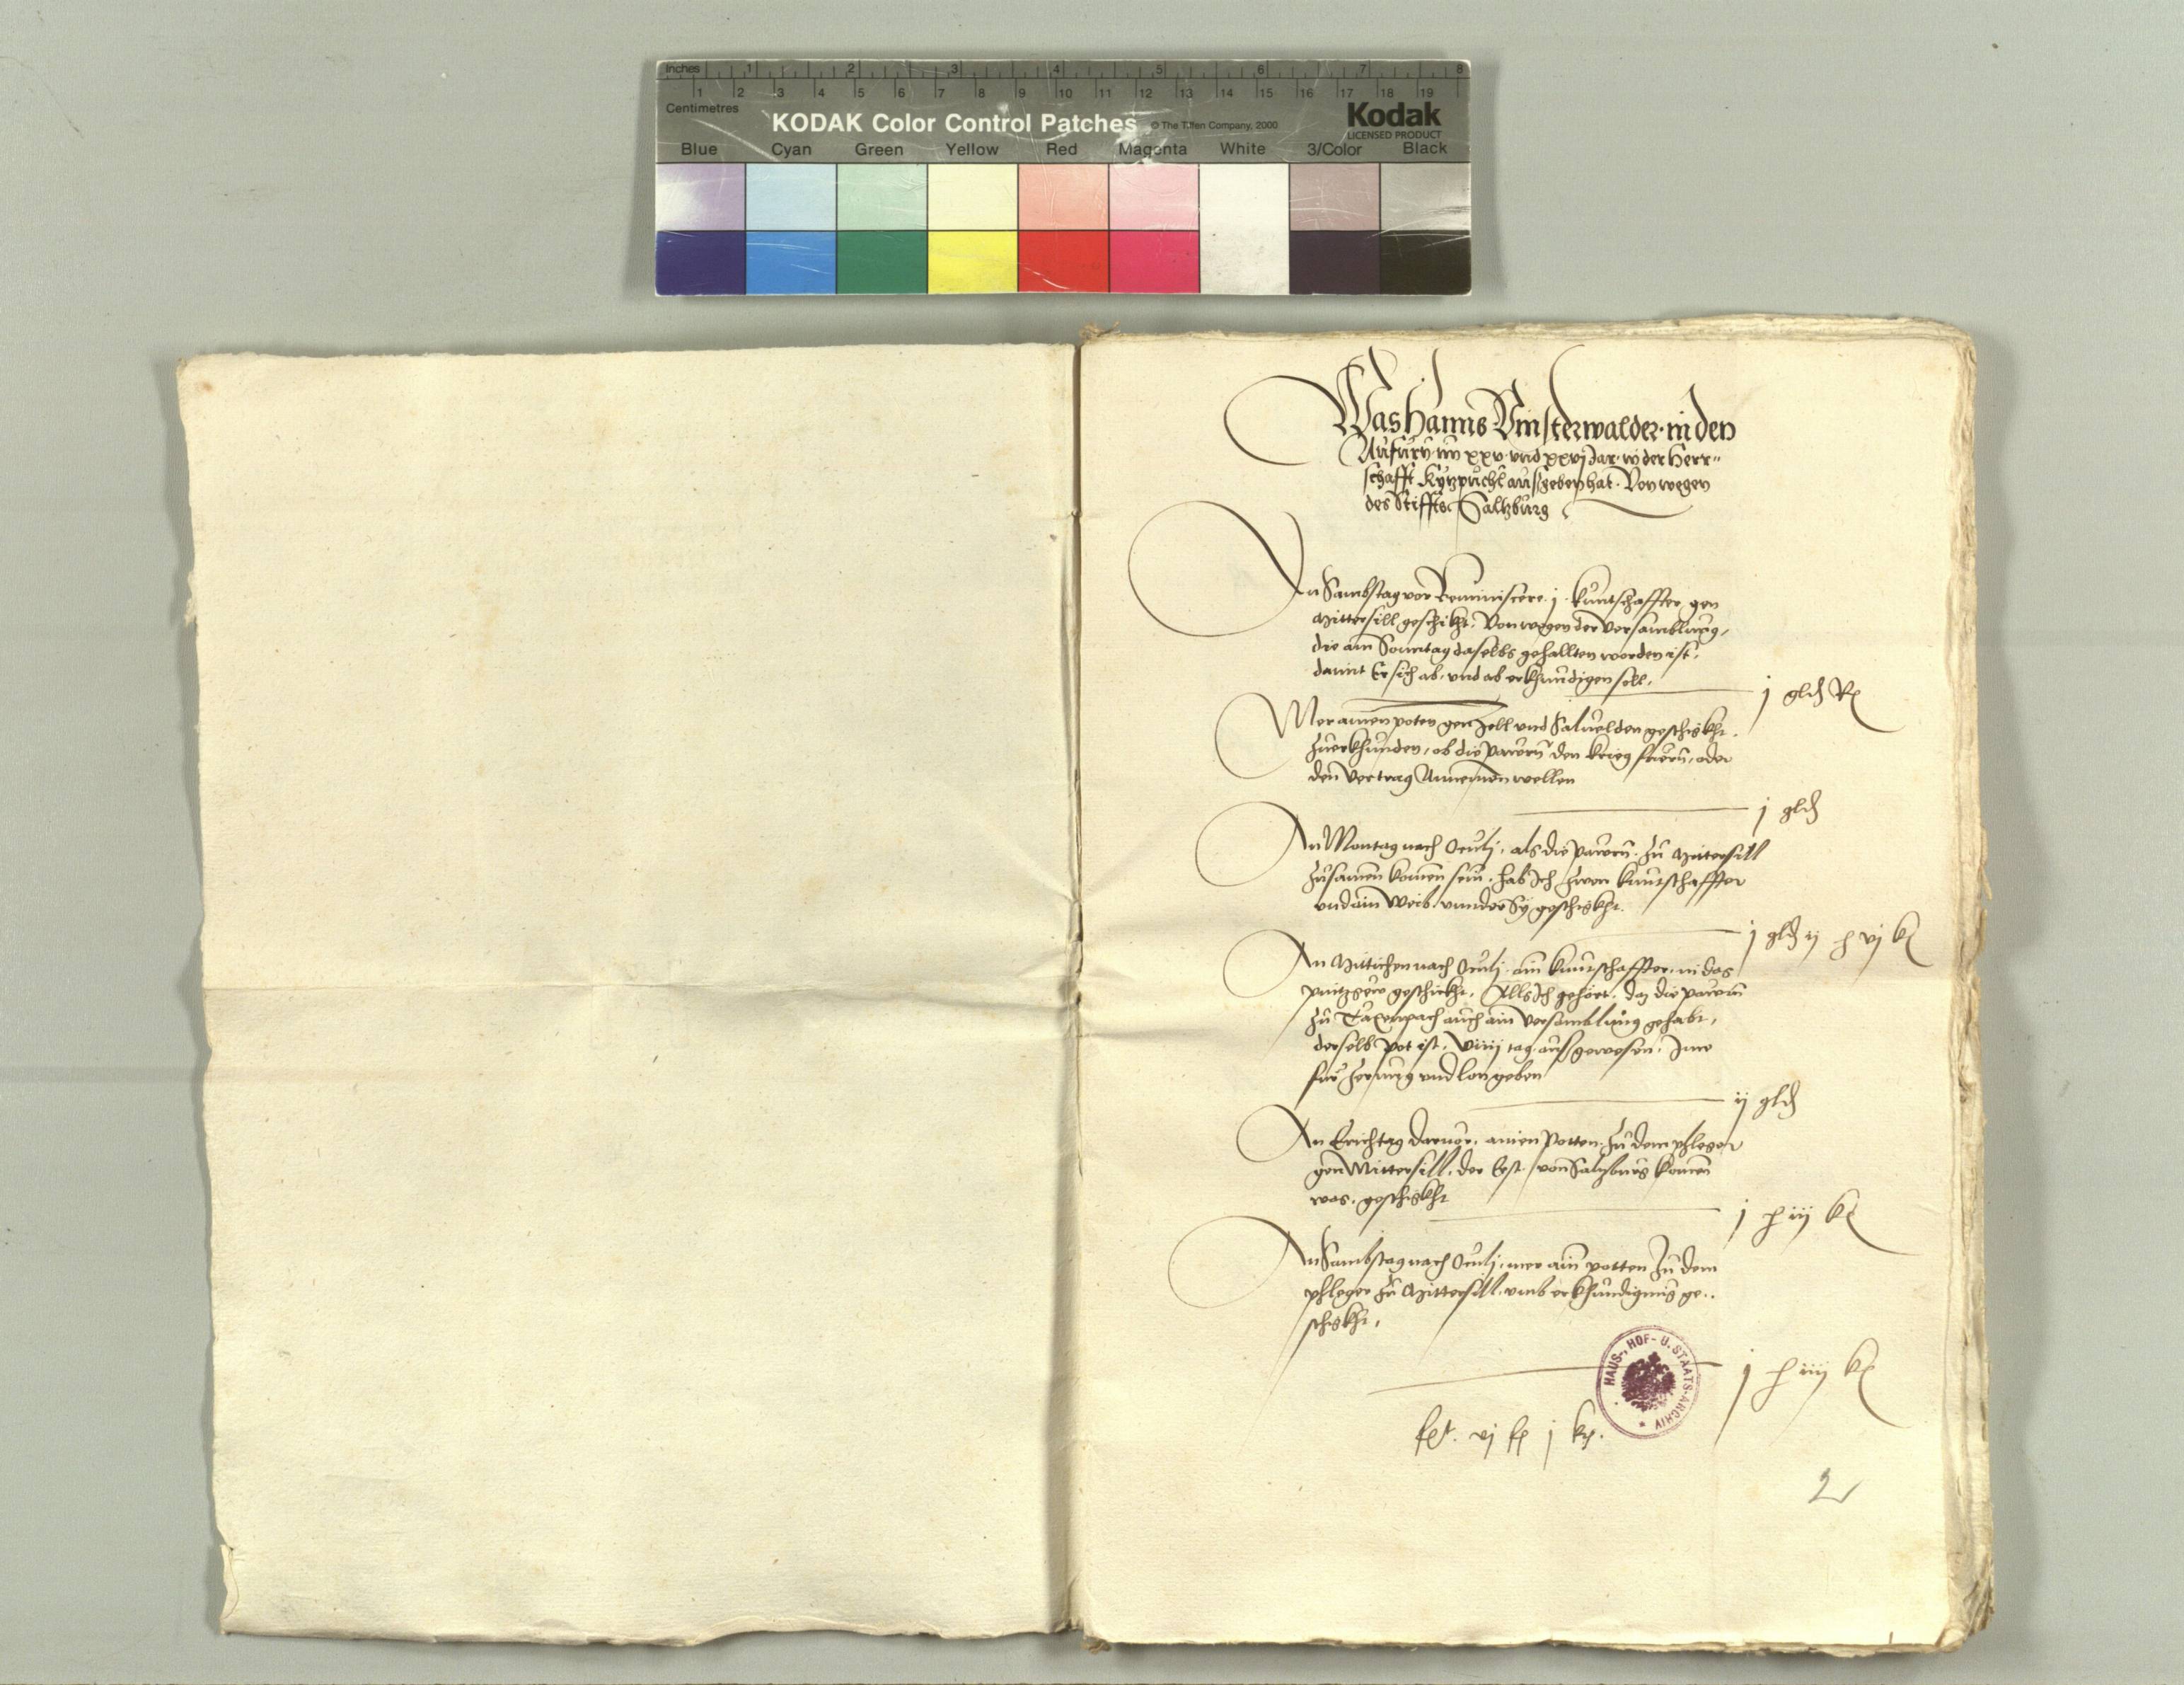 Inches 1 2 3 4 5 6 7 8
Centimetres 1 2 3 4 5 6 7 8 9 10 11 12 13 14 15 16 17 18 19
KODAK Color Control Patches © The Tiffen Company, 2000
Kodak
LICENSED PRODUCT
Blue Cyan Green Yellow Red Magenta White 3/Color Black
Was Hanns Vinsterwalder in den
Aufrurn im xxv vnd xxvj Jar in der Herr
schafft Kytzpuchl ausgeben hat. Von wegen
des Stiffts Saltzburg
An Sambstag vor Reminiscere. j. kuntschaffter gen
Mittersill geschikht, Von wegen der versamblung,
die am Sonntag daselbs gehallten worden ist,
damit Er sich ab, vnd ab erkhundigen soll,
j gld R
Mer ainen poten gen Zell vnd Salvelden geschigkht
zuerkhunden, ob die pawrn den krieg fuern, oder
den vertrag Annemen wellen
j gld
An Montag nach Oculj, als die pawrn zu Mitersill
zusamen komen sein, hab Ich zwen kuntschaffter
vnd ain Weib vnnder Sy geschigkht.
j gld ij vj k
An Mittichen nach Oculj ain kuntschaffter in das
pintzgew geschickht, Alls Ich gehört, daz die pawrn
zu Taxenpach auch ain versamblung gehabt,
derselb pot ist, viiij tag aus gewesen, Ime
fur zerung vnd lon geben
ij gld
An Erichtag darvor, ainen Potten zu dem phleger
gen Mittersill, der Erst von Saltzburg komen
was, geschigkht
j iij k
An Sambstag nach Oculj, mer ain potten zu dem
phleger zu Mittersill vmb erkhundigung ge..
schigkht,
j iiij k
HAUS-, HOF- U. STAATS-ARCHIV
vj j
2